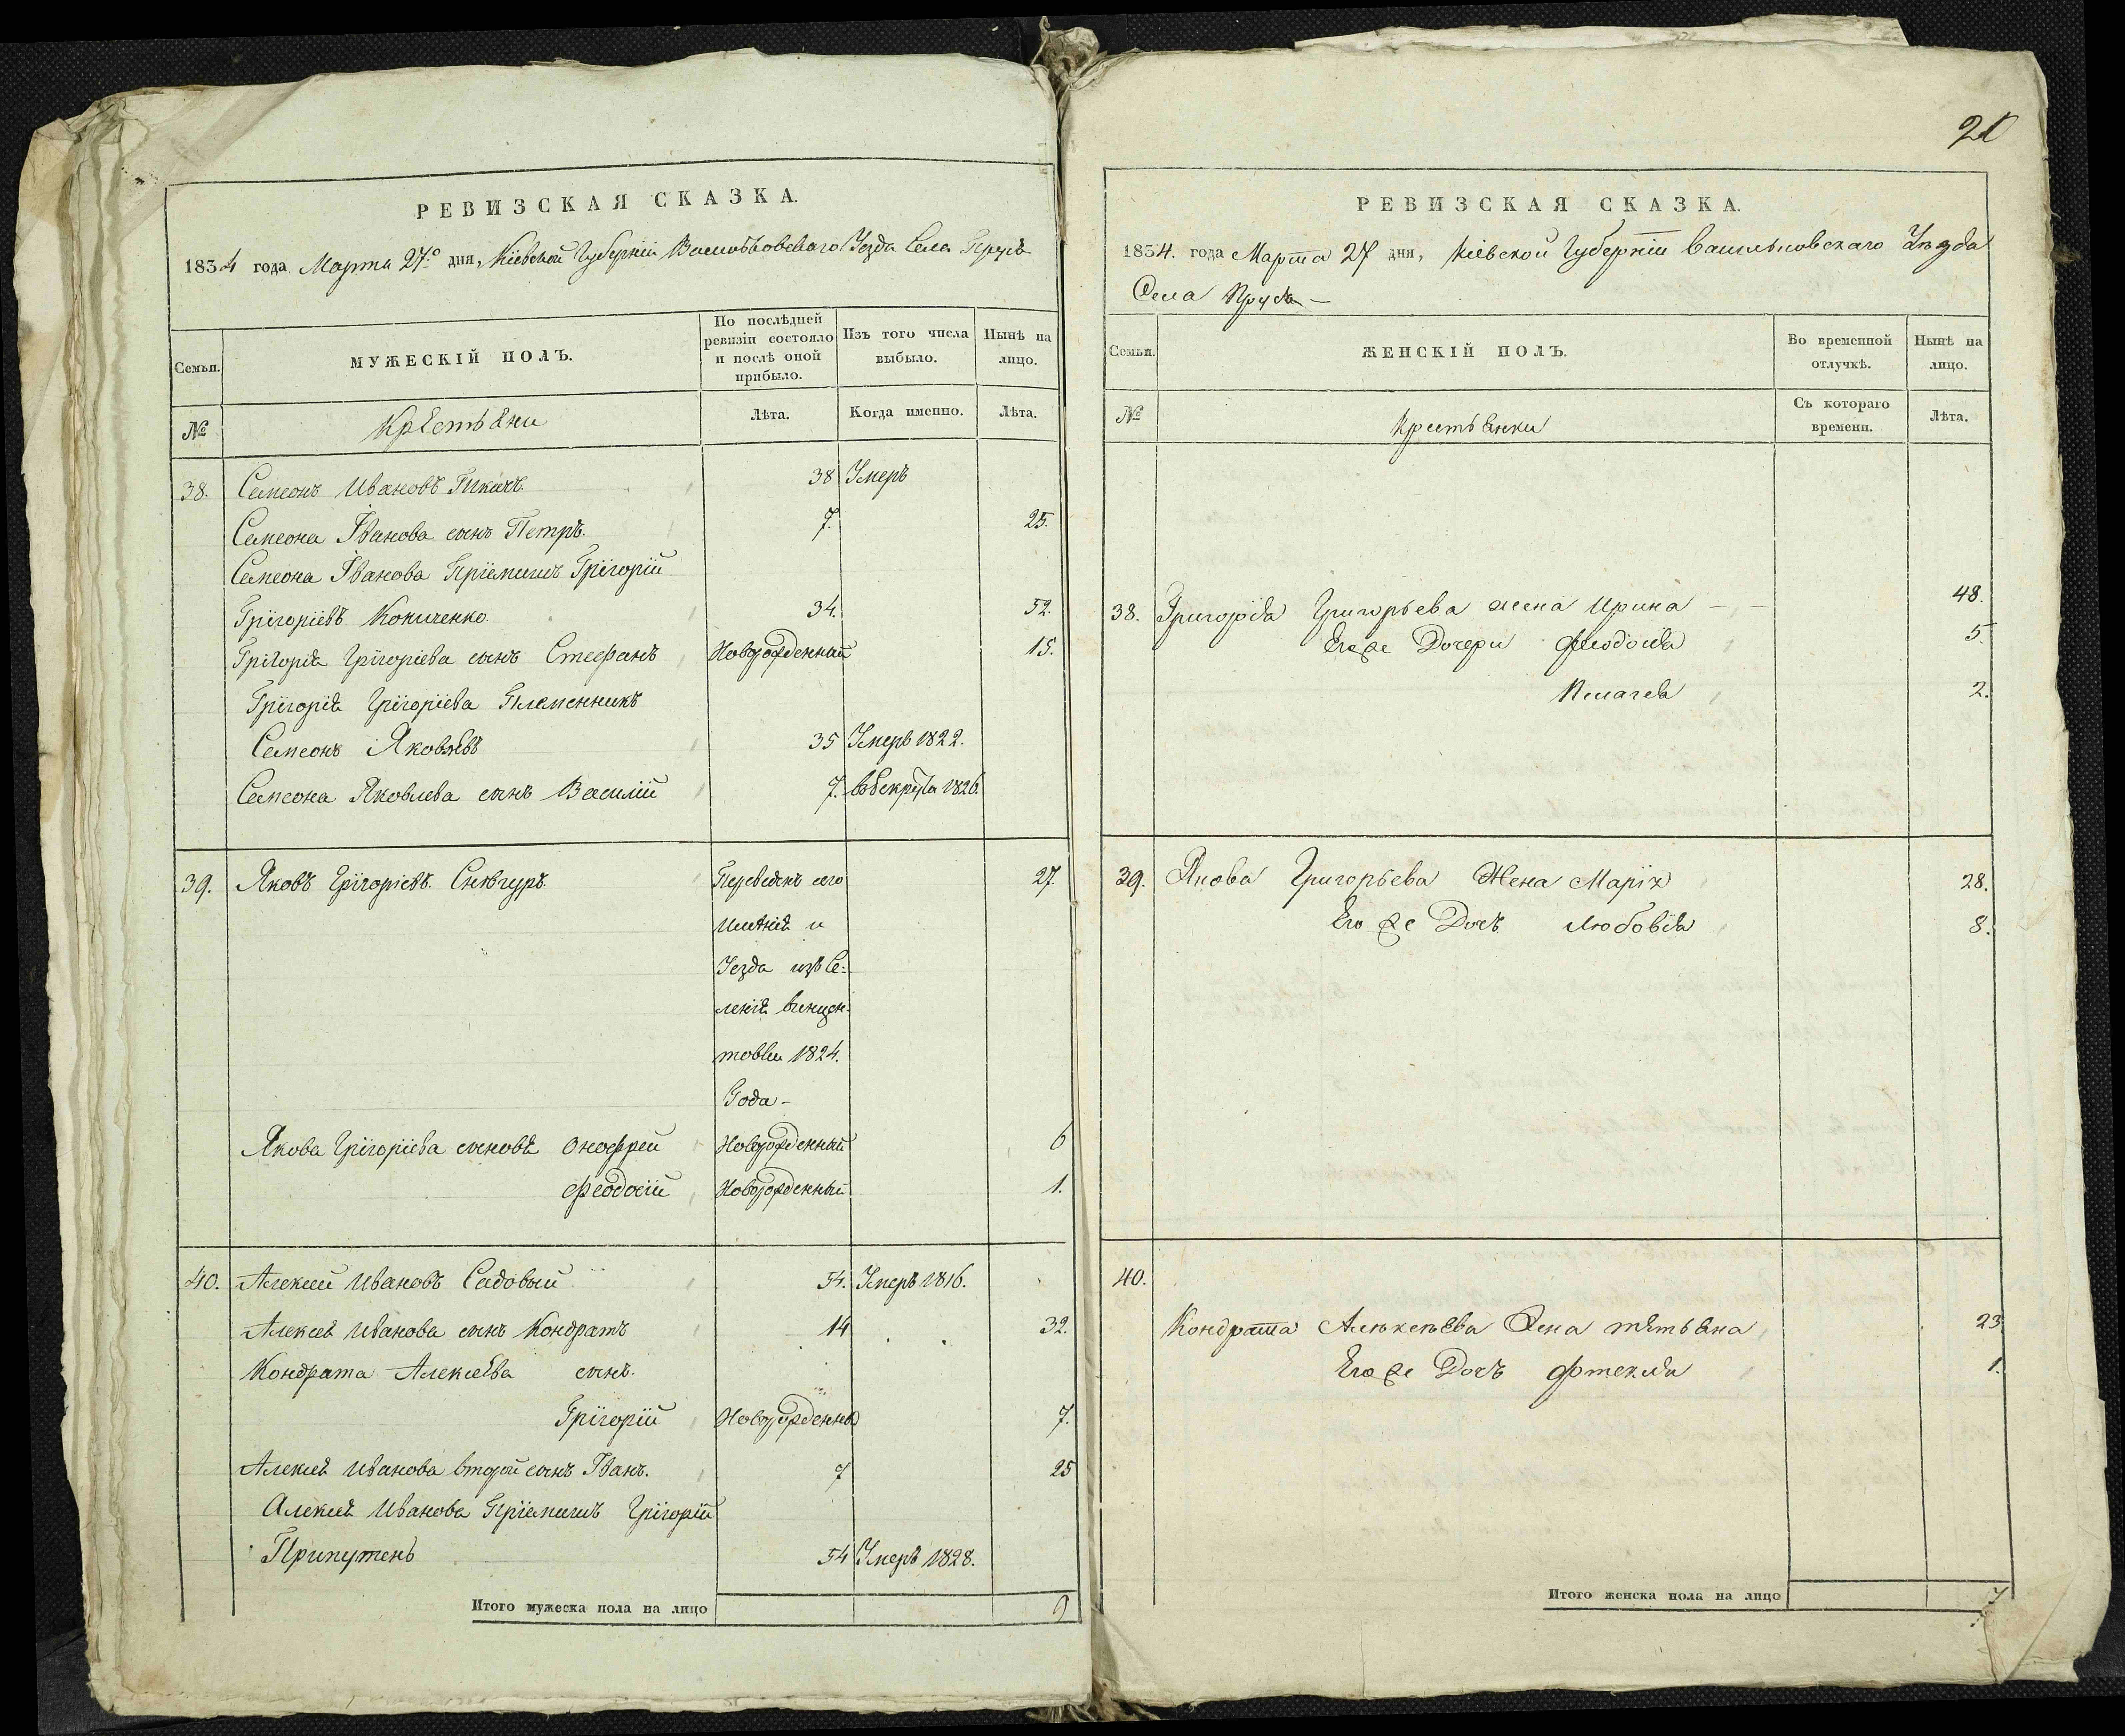 РЕВИЗСКАЯ СКАЗКА.
1834 года Марта 27го дня, Кіевской Губерніи Васильковскаго Уезда Села
Семьи.
МУЖЕСКІЙ ПОЛЪ.
По послѣдней ревизіи состояло и послѣ оной прибыло.
Изъ того числа выбыло.
Нынѣ на лицо.
№
Крестьяни
Лѣта.
Когда именно.
Лѣта.
38. Самеонъ Ивановъ 38 Умеръ
Самеона Іванова сынъ Петръ. 7. 25.
Самеона Іванова Пріемишъ Грігорій
Грігоріевъ 34. 52.
Грігорія Грігоріева сынъ Стефанъ Новорожденный 15.
Грігорія Грігоріева Племенникъ
Самеонъ Яковлевъ 35 Умеръ 1822.
Самеона Яковлева сынъ Василій 7. 1826.
39. Яковъ Грігоріевъ Снѣгуръ Переведенъ сего 27.
имѣнія и
Уезда изъ Се-
ленія Винцен-
товки 1824.
Года -
Якова Грігоріева сыновя Онофрей Новорожденный 6
Феодосій Новорожденный 1.
40. Алексий Ивановъ Садовый 54. Умеръ 1816.
Алексея Иванова сынъ Кондратъ 14 32.
Кондрата Алексеева сынъ.
Грігорій Новорожденны 7.
Алексея Иванова второй сынъ Іванъ. 7 25
Алексея Иванова Пріемишъ Грігорій
Припутенъ 54 Умеръ 1828.
Итого мужеска пола на лицо 9
20
РЕВИЗСКАЯ СКАЗКА.
1834. года Марта 27 дня, Кіевской Губерніи Васильковскаго Уѣзда
Села
Семьи.
ЖЕНСКІЙ ПОЛЪ.
Во временной отлучкѣ.
Нынѣ на лицо.
№
Крестьянки
Съ котораго времени.
Лѣта.
38. Григорія Григорьева жена Ирина - - 48.
Его же Дочери Феодосія 5.
Пелагея 2.
39. Якова Григорьева Жена Марія 28.
Его же Дочь Любовія 8.
40.
Кондрата Алексѣева Жена тятьяна 23
Его же Дочъ 1.
Итого женска пола на лицо 7